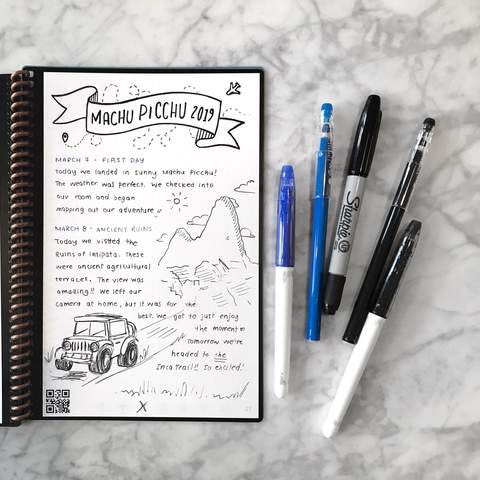 MACHU PICCHU 2019
MARCH 7 - FIRST DAY
Today we landed in sunny Machu Picchu!
The weather was perfect. We checked into
our room and began
mapping out our adventure
MARCH 8 - ANCIENT RUINS
Today we visited the
Ruins of Intipata. These
were ancient agricultural
terraces. The view was
amazing!! We left our
camera at home, but it was for the
best. We got to just enjoy
the moment
Tomorrow we're
headed to the
Inca Trail!! So excited!
X
Sharpie